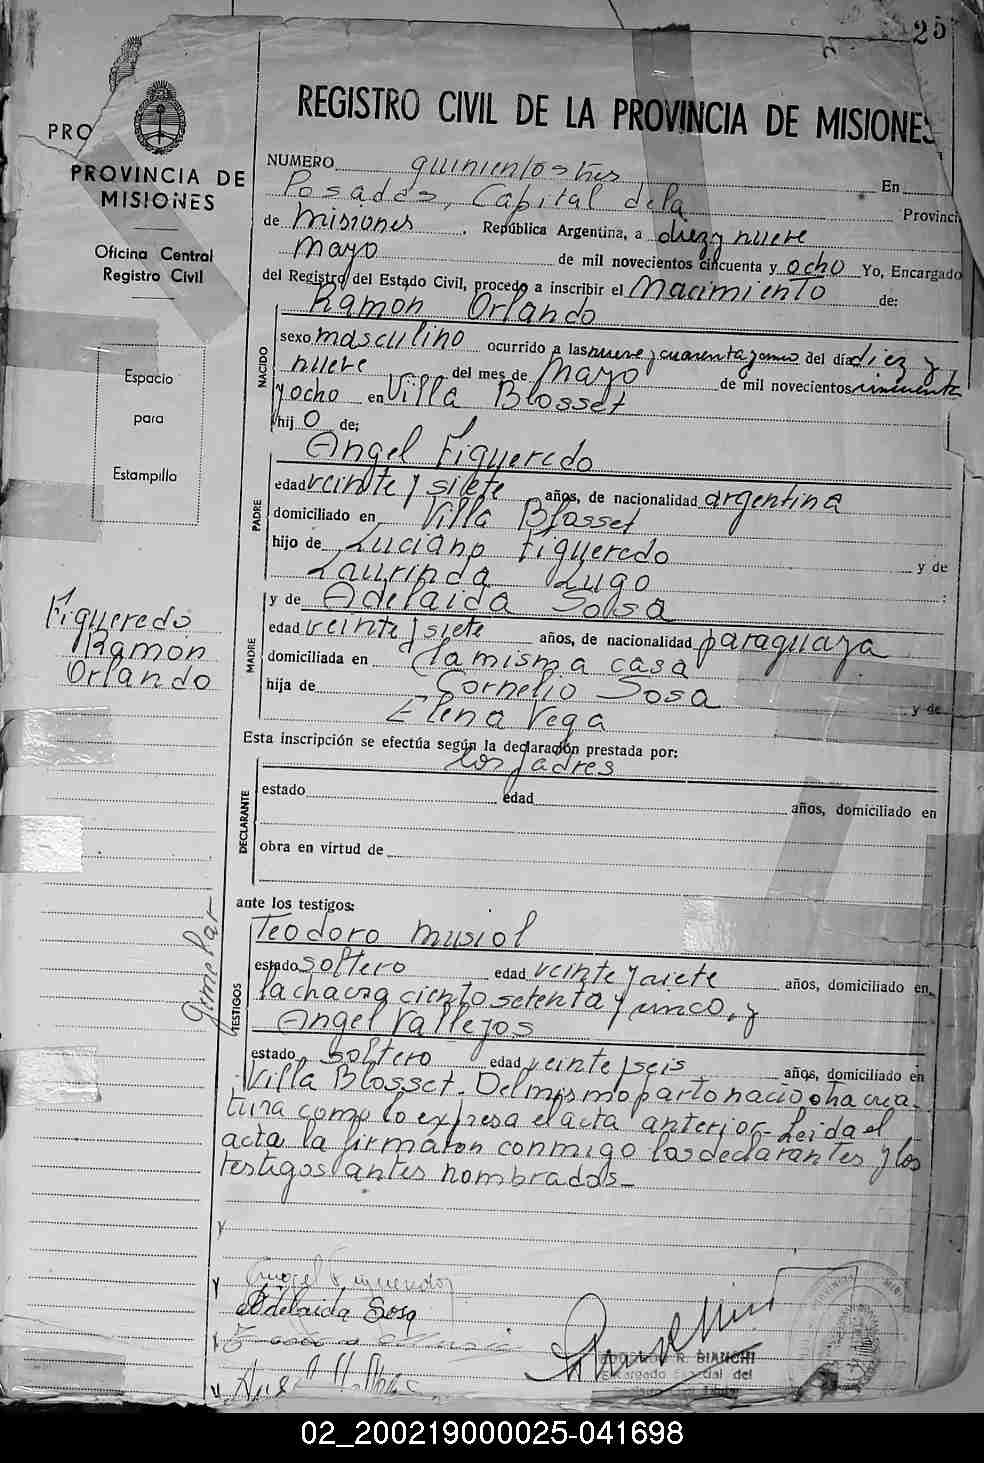 25
REGISTRO CIVIL DE LA PROVINCIA DE MISIONES
PRO
PROVINCIA DE
MISIONES
Oficina Central
Registro Civil
Espacio
para
Estampilla
Figueredo
Ramon
Orlando
Gemelar
NUMERO quinientos tres En
Posadas, Capital de la Provinci
de Misiones, República Argentina, a diez y nueve
Mayo de mil novecientos cincuenta y ocho Yo, Encargado
del Registro del Estado Civil, procedo a inscribir el Nacimiento de:
Ramon Orlando
NACIDO
sexo masculino ocurrido a las nueve y cuarenta y cinco del día diez y
nueve del mes de Mayo de mil novecientos cincuenta
y ocho en Villa Blosset
hij o de;
Angel Figueredo
PADRE
edad veinte y siete años, de nacionalidad argentina
domiciliado en Villa Blosset
hijo de Luciano Figueredo y de
Laurinda Lugo :
y de Adelaida Sosa
MADRE
edad veinte y siete años, de nacionalidad paraguaya
domiciliada en la misma casa
hija de Cornelio Sosa y de
Elena Vega
Esta inscripción se efectúa según la declaración prestada por:
los padres
DECLARANTE
estado edad años, domiciliado en
obra en virtud de
ante los testigos:
Teodoro Musiol
TESTIGOS
estado soltero edad veinte y siete años, domiciliado en
la chacra ciento setenta y cinco, y
Angel Vallejos
estado soltero edad veinte y seis años, domiciliado en
Villa Blosset. Del mismo parto nacio otra cria-
tura como lo expresa el acta anterior. Leida el
acta la firmaron conmigo los declarantes y los
testigos antes nombrados_
Angel Figueredo
Adelaida Sosa
R. BIANCHI
02_200219000025-041698